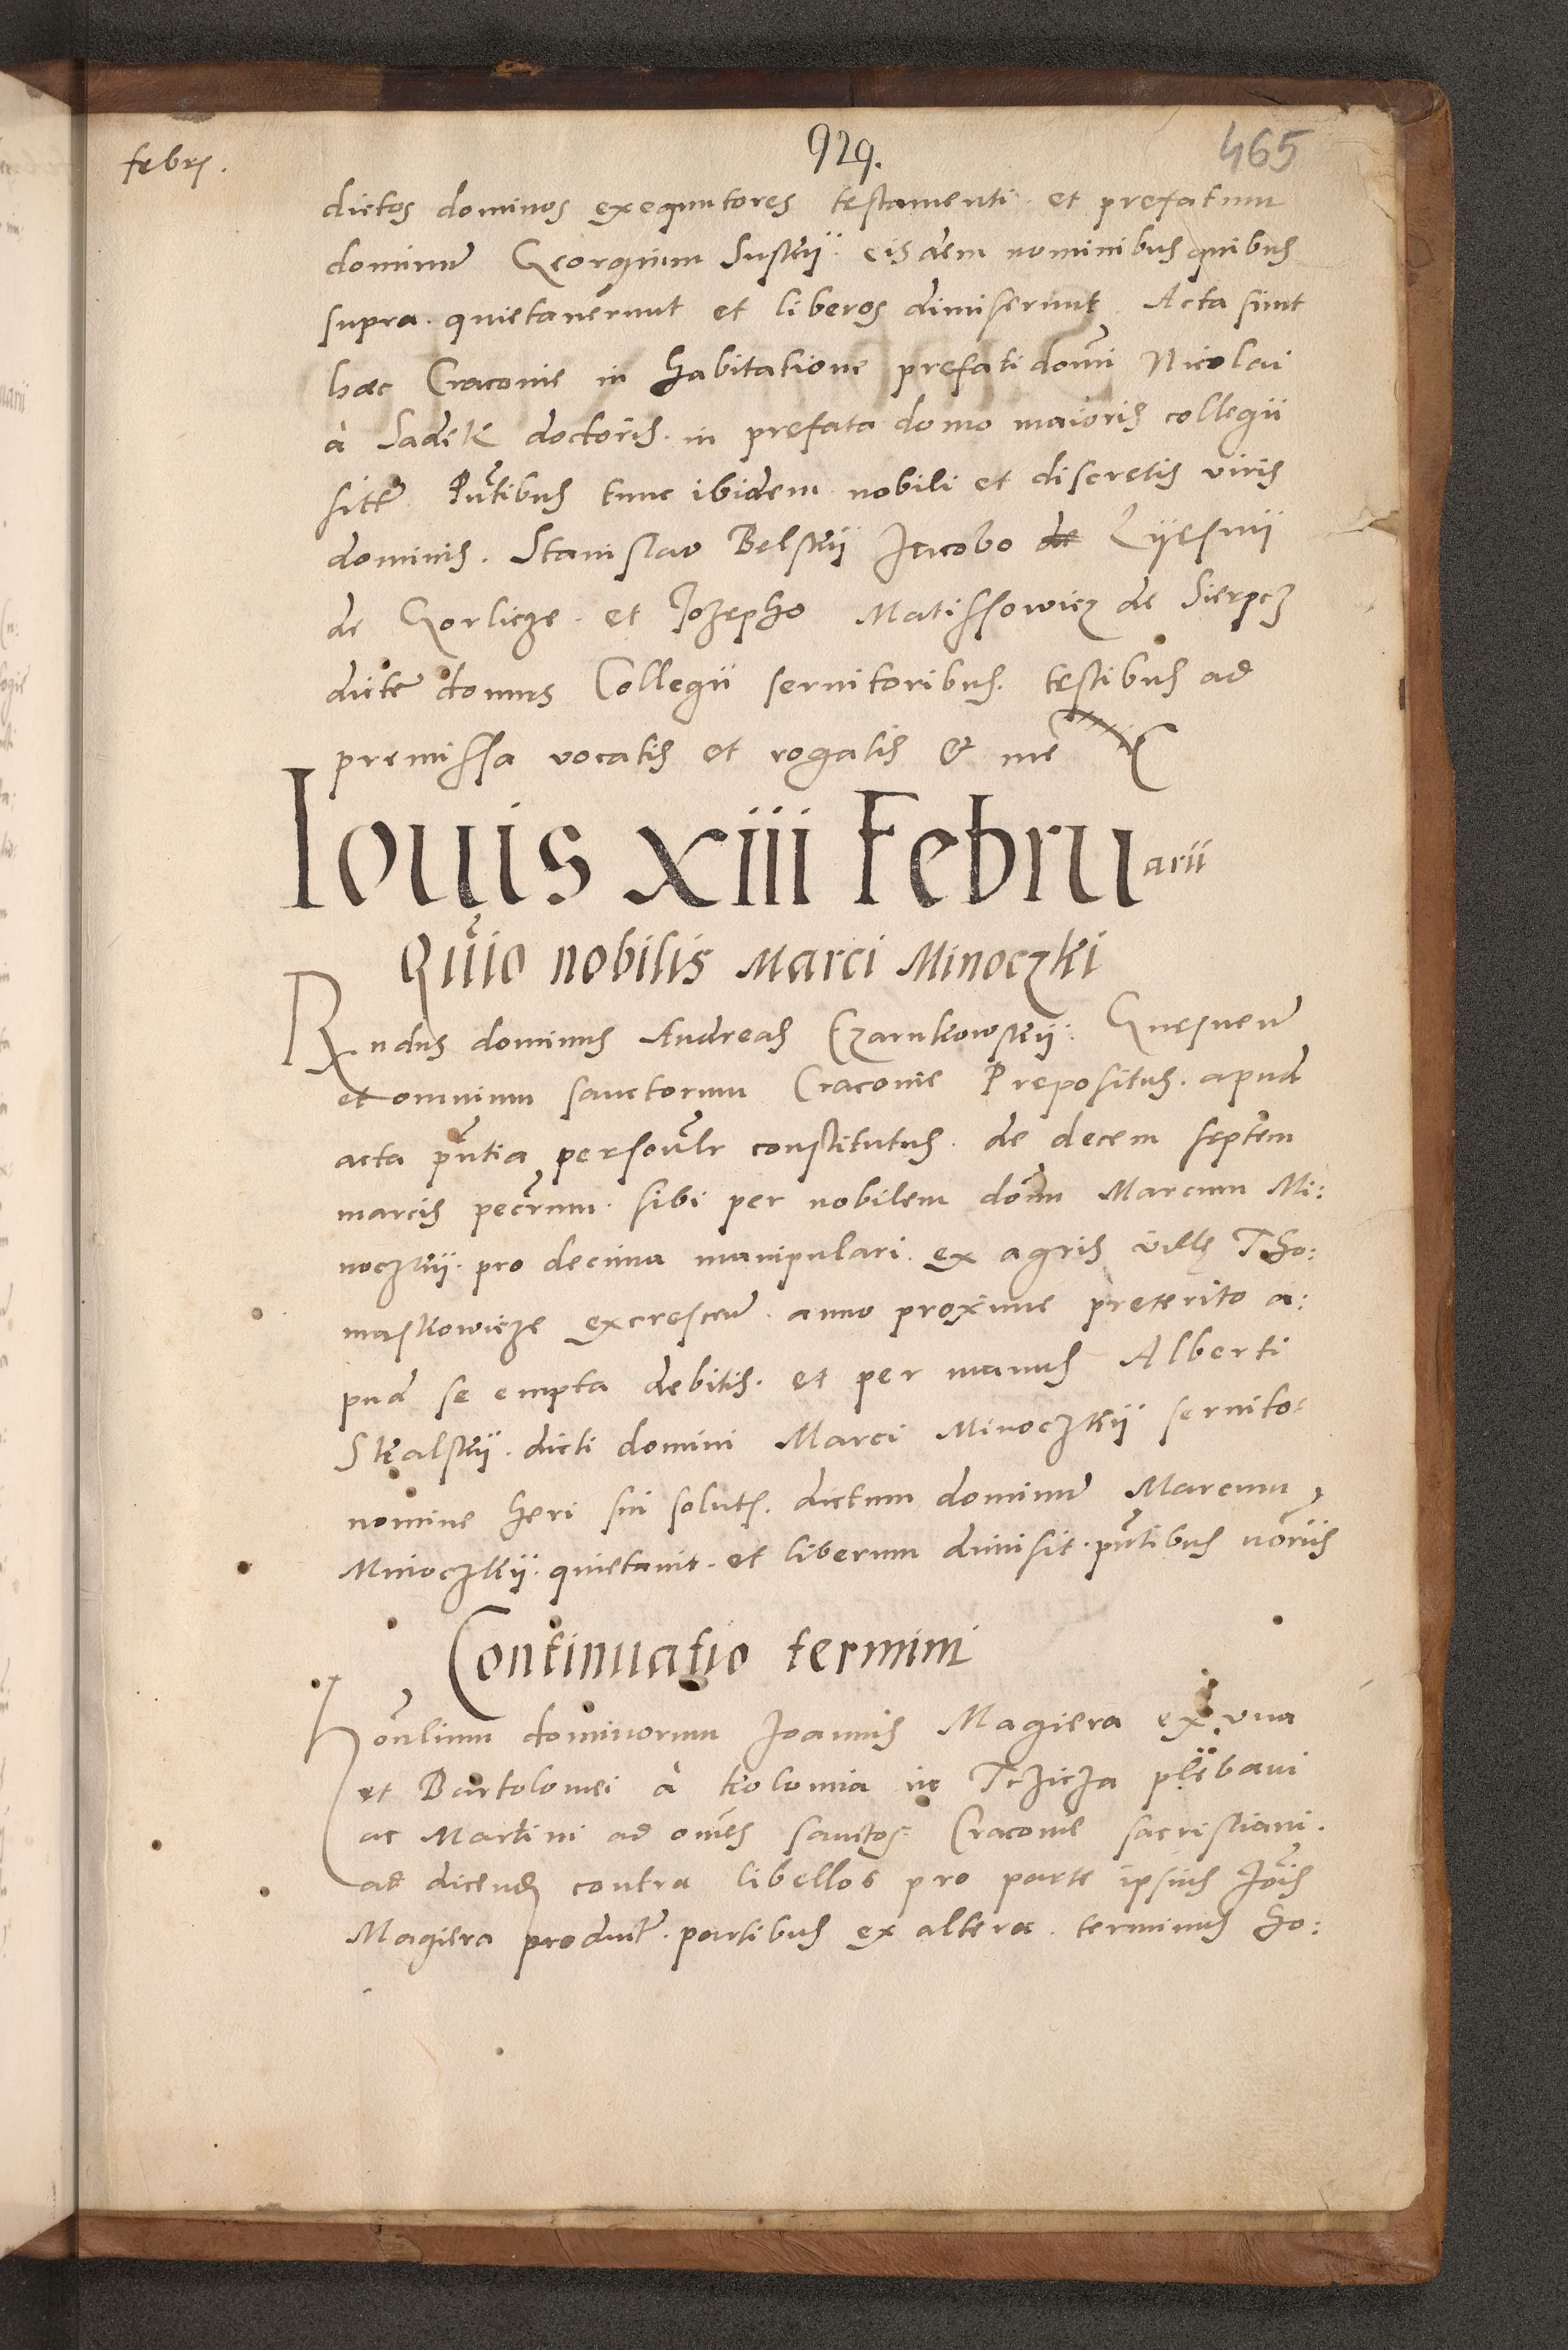 929.
465
febrͥ.
dictos dominos exequutores testamenti et prefatum
dominū Georgium Suskij eisdem nominibus quibus
supra quietauerunt et liberos dimiserunt. Acta sunt
haec Cracouie in habitatione prefati domī Nicolai
à Sadek doctoris in prefata domo maioris collegii
sitē. Pn̄tibus tunc ibidem nobili et discretis viris
dominis. Stanislao Belskij Iacobo de Lyesnij
de Gorlicze et Jozepho Matissowicz de Sierpcz
dictē domus Collegii seruitoribus. testibus ad
premissa vocatis et rogatis & me
Iouis xiii Februarii
Quīo nobilis Marci Minoczki
Rndus dominus Andreas Czarnkowskij Gnesneñ
et omnium sanctorum Cracouie Prepositus. apud
acta pn̄tia personalr̄ constitutus. de decem septem
marcis pecc̄rum. sibi per nobilem dom̄ Marcum Mi:
noczkij. pro decima manipulari. ex agris villę Tho:
maskowicze excrescen̄. anno proxime preterito a:
pud se empta debitis. et per manus Alberti
Skalskij. dicti domini Marci Minoczkij seruito:
nomine heri sui solutꝭ. dictum dominū Marcum
Minoczkij. quietauit. et liberum dimisit. pn̄tibus nōriis
Continuatio termini
Honlium dominorum Joannis Magiera ex vna
et Bartolomei à Kolomia in Tczicza plebani
ac Martini ad om̄es sanctos Cracouie sacristiani.
ad dicendꝭ contra libellos pro parte ipsius Jōis
Magiera productē. partibus ex altera. terminus ho: